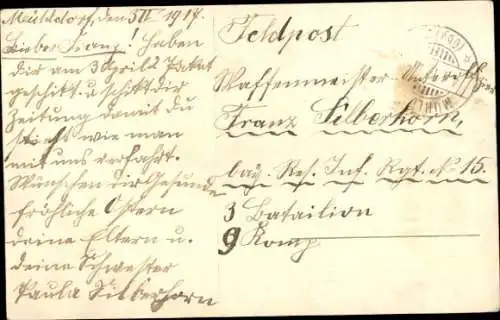 Mühldorf, den 5IV 1917.
Lieber Franz! Haben
dir am 3 April 2 Packet
geschikt u. schikt dir
Zeitung damit du
siehst wie man
mit uns verfährt.
Wünschen dir Gesunde
fröhliche Ostern
deine Eltern u.
deine Schwester
Paula Silberhorn
Feldpost
Waffenmeister-Unteroffizier
Franz Silberhorn,
bay. Res. Inf. Rgt. No 15.
3 Batailion
9 Komp